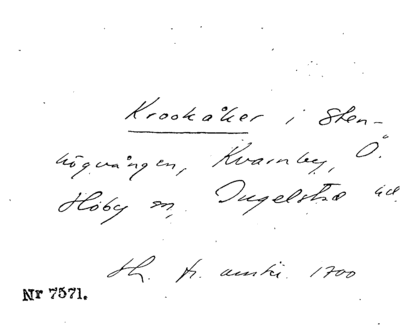 Krookåker i Sten-
högvången, Kvarnby, Ö.
Hoby sn, Ingelstad hd
fr. omkr. 1700
Nr 7571.